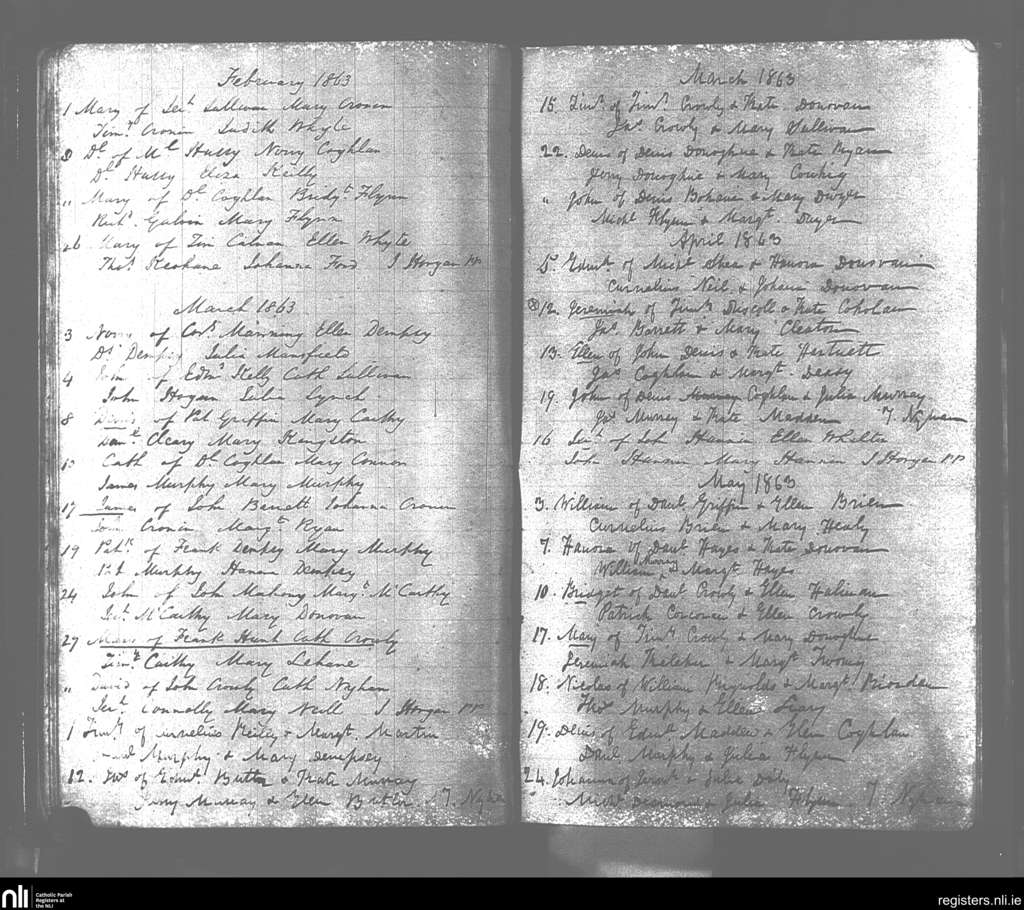 February 1863
1 Mary of Jerh Sullivan Mary Cronin
Timy Cronin Judith Whyte
Dl of Ml Hussy Nory Coghlan
Dl Hussy Eliza Reilly
" Mary of Dl Coghlan Bridgt Flynn
Richd Galvin Mary Flynn
26 Mary of Tim Calnan Ellen Whyte
Thos Keohane Johanna Ford J Horgan PP
March 1863
3 Nory of Cors Manning Ellen Dempsy
Ds Dempsy Julia Mansfield
4 John of Edmd Kelly Cath Sullivan
John Hogan Lynch
8 Denis of Pat Griffin Mary Carthy
Danl Cleary Mary Kingston
Cath of Dl Coghlan Mary Connor
James Murphy Mary Murphy
17 James of John Barrett Johanna Cronin
John Cronin Margt Ryan
19 Patk of Frank Dempsy Mary Murphy
Murphy Hanna Dempsy
24 John of John Mahony Margt McCarthy
McCarthy Mary Donovan
27 Mary of Frank Hunt Cath Crowly
Timy Carthy Mary Lehane
" David of John Crowly Cath Nyhan
Jerh Connolly Mary Neill J Horgan PP
1 Timy of Curnelius & Margt Martin
Murphy & Mary Dempsey
12. Jas of Edmd Butler & Kate Murray
Murray & Ellen Butler T. Nyhan
March 1863
15. Timy of Timy Crowly & Kate Donovan
Jas Crowly & Mary Sullivan
22. Denis of Denis Donoghue & Kate Ryan
Jerry Donoghue & Mary Cowhig
" John of Denis Bohane & Mary Dwyer
Michl Flynn & Margt Dwyer
April 1863
5. Edmd of Michl Shea & Hanora Donovan
Curnelius Neil & Johana Donovan
12. Jeremiah of Timy Driscoll & Kate Coholan
Jas Barrett & Mary Cleaton
13. Ellen of John Denis & Kate Hartnett
Jas Coghlan & Margt Deasy
19. John of Denis Coghlan & Julia Murray
Jas Murrey & Kate Madden T Nyhan
16 of Joh Hannin Ellen Whelton
John Hannan Mary Hannan J Horgan PP
May 1863
3. William of Danl Griffin & Ellen Brien
Curnelius Brien & Mary Healy
7. Hanora of Danl Hayes & Kate Donovan
William Murray & Margt Hayes
10. Bridget of Danl Crowly & Ellen Halinan
Patrick Corcoran & Ellen Crowly
17. Mary of Timy Crowly & Mary Donoghue
Jeremiah Keleher & Margt Twomy
18. Nicolas of William Reynolds & Margt Riordan
Thos Murphy & Ellen Leary
19. Denis of Edmd Madden & Ellen Coghlan
Danl Murphy & Julia Flynn
24. Johanna of Jerh & Julia Daly
Michl Desmond & Julia Flynn T Nyhan
nli
Catholic Parish
Registers at
the NLI
registers.nli.ie